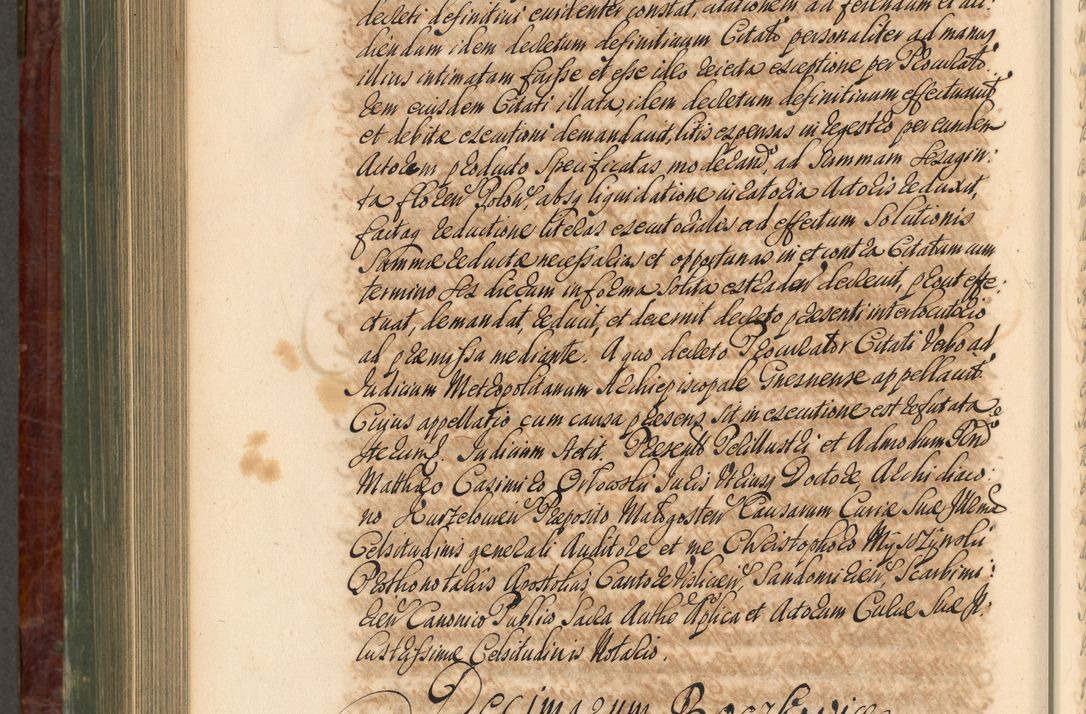 decleti definitivi evidenter constat, citationem ad ferendum et au:
diendum idem decretum definitivum Citato personaliter ad manus
illius intimatam fuisse et esse ideo rejecta exceptione per Procurato
rem eiusdem Citati illata, idem decretum definitivum effectuavit
et debitæ executioni demandavit, litis expensas in regestro per eundem
Actorem producto specificatas, moderand, ad Summam Sexagin:
ta floren Polon, absq liquidatione iuratoria Actoris reduxit,
factaq reductione literas executoriales ad effectum Solutionis
Summæ reductæ necessarias et opportunas in et contra Citatum cum
termino Sex dierum in forma Solita extraden decrevit, prout effe:
ctuat, demandat, reducit, et decernit decreto præsenti interlocutorio
ad præmissa mediante. A quo decreto Procurator Citati verbo ad
Judicium Metropolitanum Archiepiscopale Gnesnense appellavit
Cuius appellatio cum causa præsens sit in executione est refutata
Iterum. Judicium stetit. Præsent Perillustri et Admodum Rnd
Matthæo Casimiro Orłowski Juris Utriusq Doctore, Archidiaco:
no Kurzeloviens Præposito Małogosten Causarum Curiæ Suæ Illmæ
Celsitudinis generali Auditore et me Christophoro Myszynski
Prothonotariis Apostolicis Cantore Vislicien, Sandomirien, Scarbimi:
rien Canonico Publico Sacra Autho Aplica et Actorum Curiæ Suæ Il
lustrissimæ Celsitudinis Notario.
Decimarum